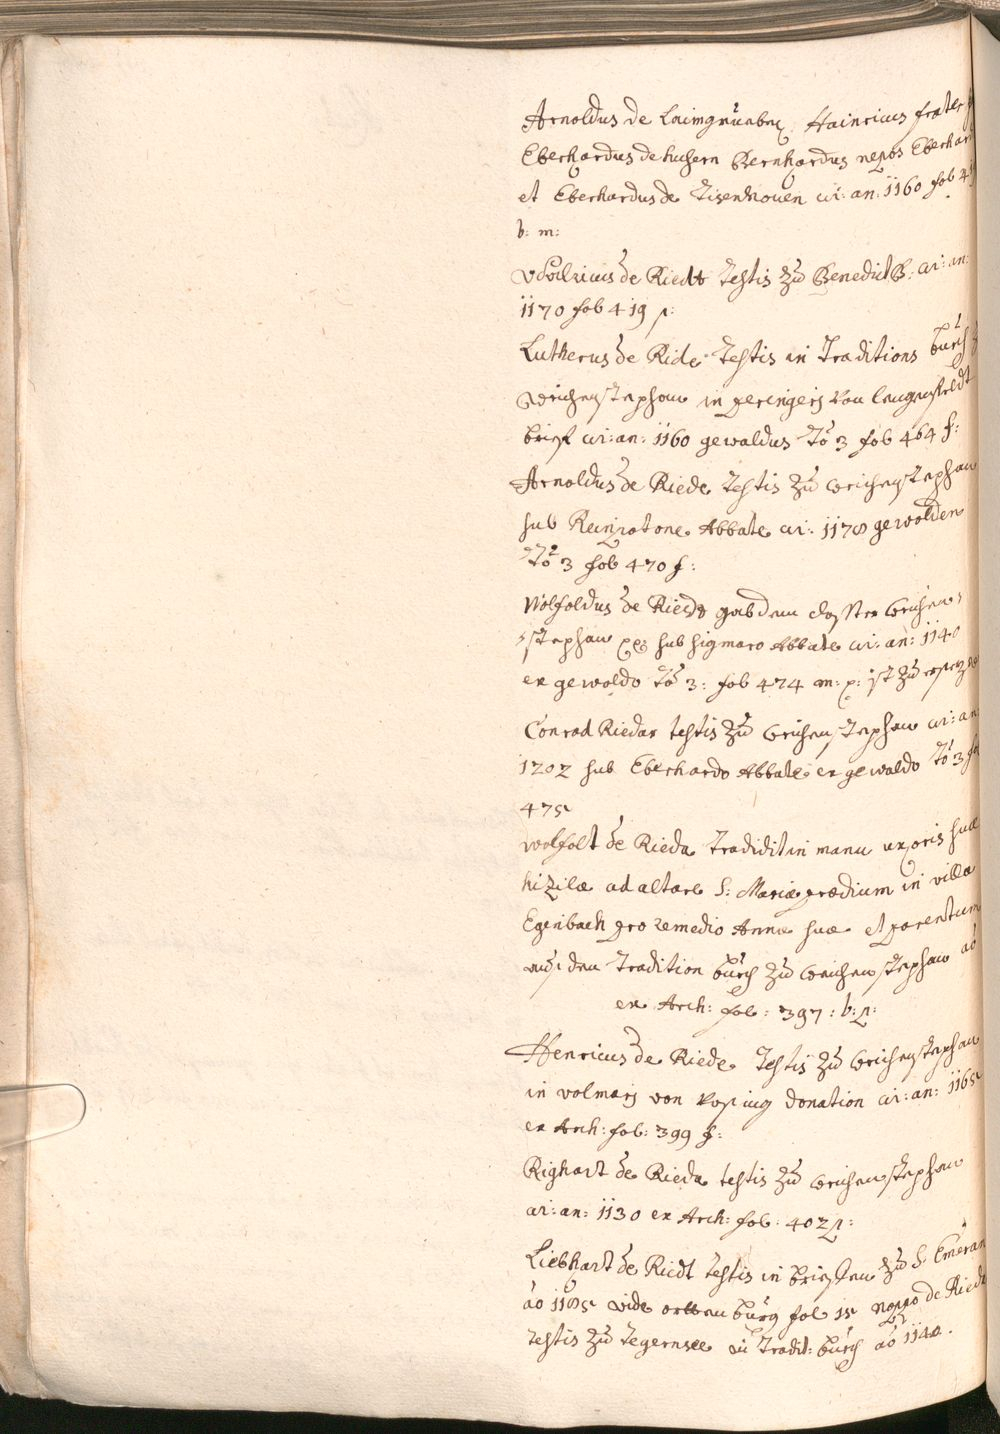 Arnoldus de Laimgruaben Hainricus frater
Eberhardus de husern Bernhardus nepos Eberhar
et Eberhardus de Tisenhouen cir: an: 1160 fol 4
b: m:
Vdalricus de Riedt testis zu Benedict B: cir: an:
1170 fol 419 p:
Lutherus de Ride testis in Traditions buech
Weichenstephan in geringerj von lengenfeldt
brief cir: an: 1160 gewaldus To 3 fol 464 f:
Arnoldus de Riede testis zu Weichenstephan
sub Reinpotone Abbate cir: 1178 gewolden
To 3 fol 470 f:
Wolfoldus de Riede gab dem closter Weichen
stephan pp: sub Sigmaro Abbate cir: an: 1140
ex gewoldo To 3: fol 474 m: p: ist zu
Conrad Rieder testis zu Weichenstephan cir: an:
1202 sub Eberhardo Abbate ex gewaldo To 3 fol
475
Wolfolt de Rieda tradidit in manu uxoris suæ
hizilæ ad altare S: Mariæ prædium in villa
Egenbach pro remedio Animæ suæ et parentum
aus den Tradition buech zu Weichenstephan ao
ex Arch: fol: 397: b: p:
Henricus de Riede testis zu Weichenstephan
in volmarj von donation cir: an: 1165
ex Arch: fol: 399 f:
Righart de Rieda testis zu Weichenstephan
cir: an: 1130 ex Arch: fol: 402 p:
Liebhart de Riedt testis in briefen zu S Emeran
ao 1185 vide orttenburg fol 15 Noppo de Riede
testis zu Tegernsee in Tradit: buech ao 1142.